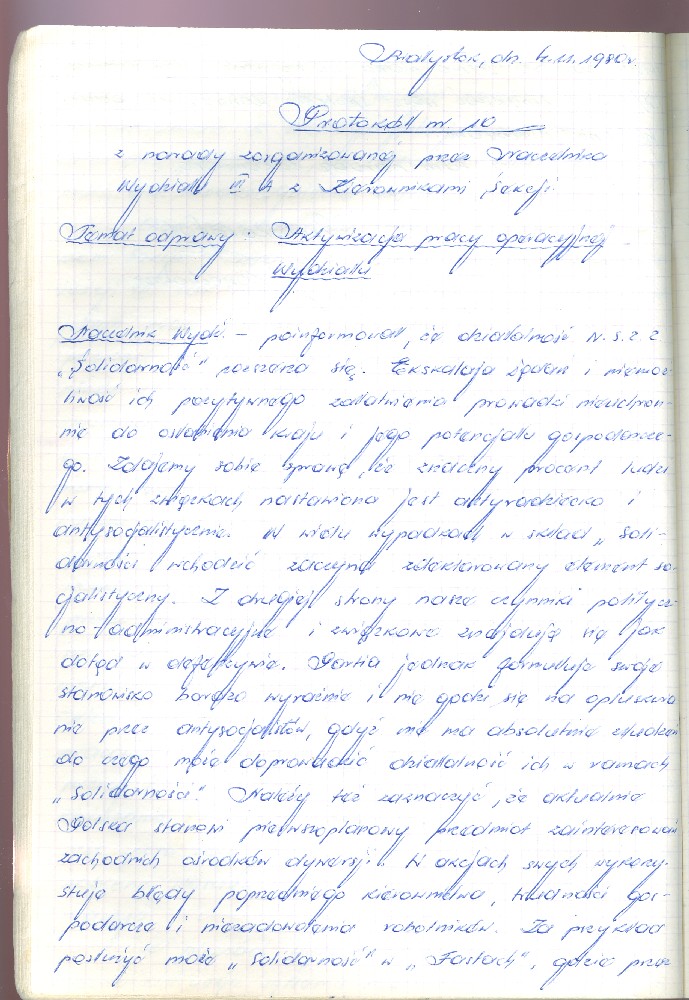 Białystok, dn. 4.11.1980r.
Protokół nr. 10
z narady zorganizowanej przez Naczelnika
Wydziału III A z Kierownikami Sekcji.
Temat odprawy: Aktywizacja pracy operacyjnej
Wydziału
Naczelnik Wydz. – poinformował, że działalność N.S.Z.Z.
„Solidarność" poszerza się. Eskalacja żądań i niemoż-
liwość ich pozytywnego załatwienia prowadzi nieuchron-
nie do osłabienia kraju i jego potencjału gospodarcze-
go. Zdajemy sobie sprawę, że znaczny procent ludzi
w tych związkach nastawiona jest antyradziecko i
antysocjalistycznie. W wielu wypadkach w skład „Soli-
darności wchodzić zaczyna zdeklarowany element so-
cjalistyczny. Z drugiej strony nasze czynniki politycz-
no-administracyjne i związkowe znajdują się jak
dotąd w defensywie. Partia jednak formułuje swoje
stanowisko bardzo wyraźnie i nie godzi się na opluskwia
nie przez antysocjalistów, gdyż nie ma absolutnie złudzeń
do czego może doprowadzić działalność ich w ramach
„Solidarności". Należy też zaznaczyć, że aktualnie
Polska stanowi pierwszoplanowy przedmiot zainteresowań
zachodnich ośrodków dywersji. W akcjach swych wykorzy-
stuje błędy poprzedniego kierownictwa, trudności gos-
podarcze i niezadowolenia robotników. Za przykład
posłużyć może „Solidarność" w „Fastach", gdzie przez